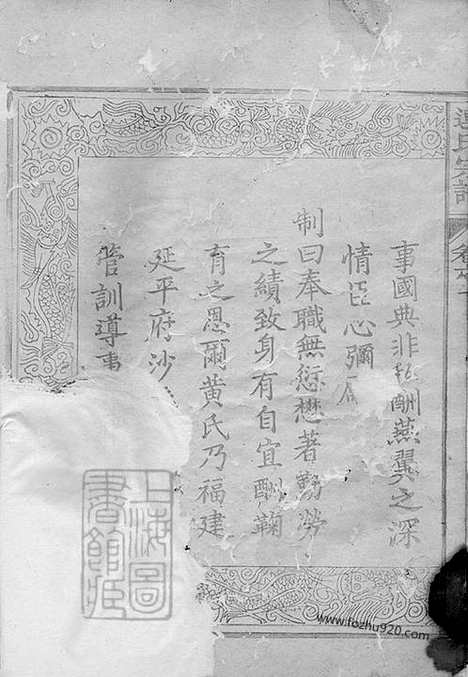 氏宗譜
卷
事國典非 酬燕翼之深
情臣心彌
制曰奉職無愆懋著勤勞
之績致身有自宜酬鞠
育之恩爾黃氏乃福建
延平府沙
管訓導事
上海圖
書館藏
www.fozhu920.com